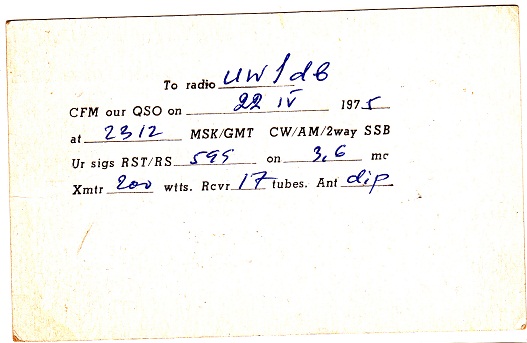 To radio UW1dB
CFM our QSO on 22 IV 1975
at 2312 MSK/GMT CW/AM/2way SSB
Ur sigs RST/RS 599 on 3,6 mc
Xmtr 200 wtts. Rcvr 17 tubes. Ant dip